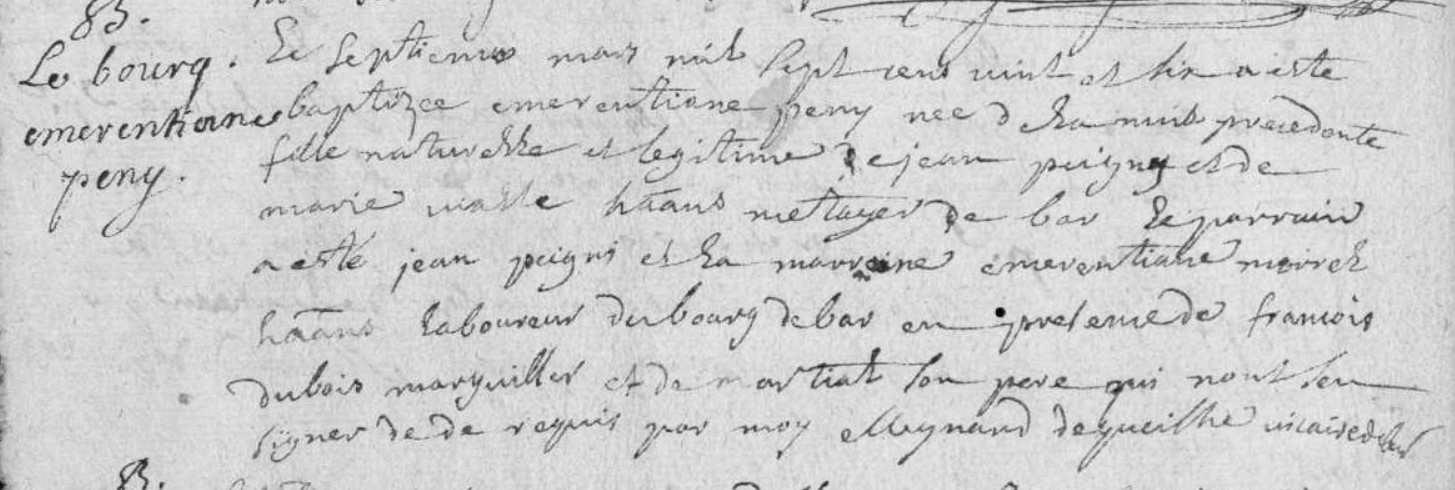 B.
Le bourg.
emerentiane
peny.
Le septieme mars mil sept cens vint et six a este
baptizee emerentiane peny nee de la nuit precedente
fille naturelle et legitime de jean peigny et de
marie valle hãans metayer de bar le parrain
a esté jean peigni et la marreine emerentiane
hãans laboureur du bourg de bar en presence de francois
dubois marguiller et de martial son pere qui nont seu
signer de de requis par moy vicaire de bar
B.